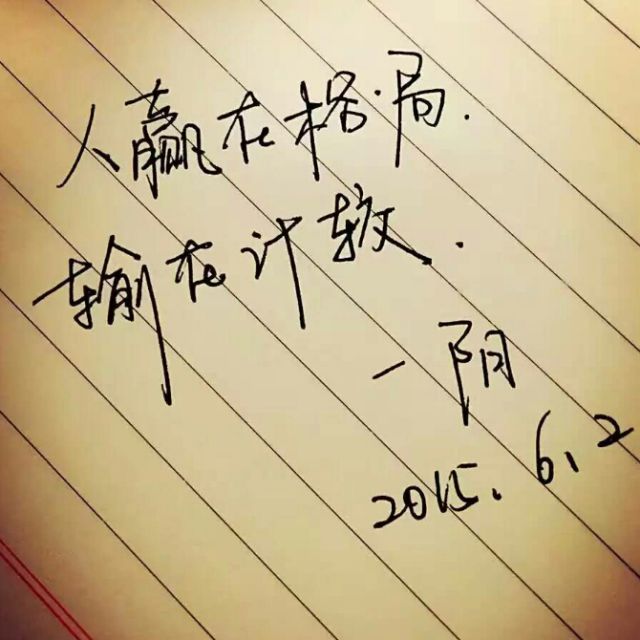 人赢在格局.
输在计较.
一阴
2015.6.2